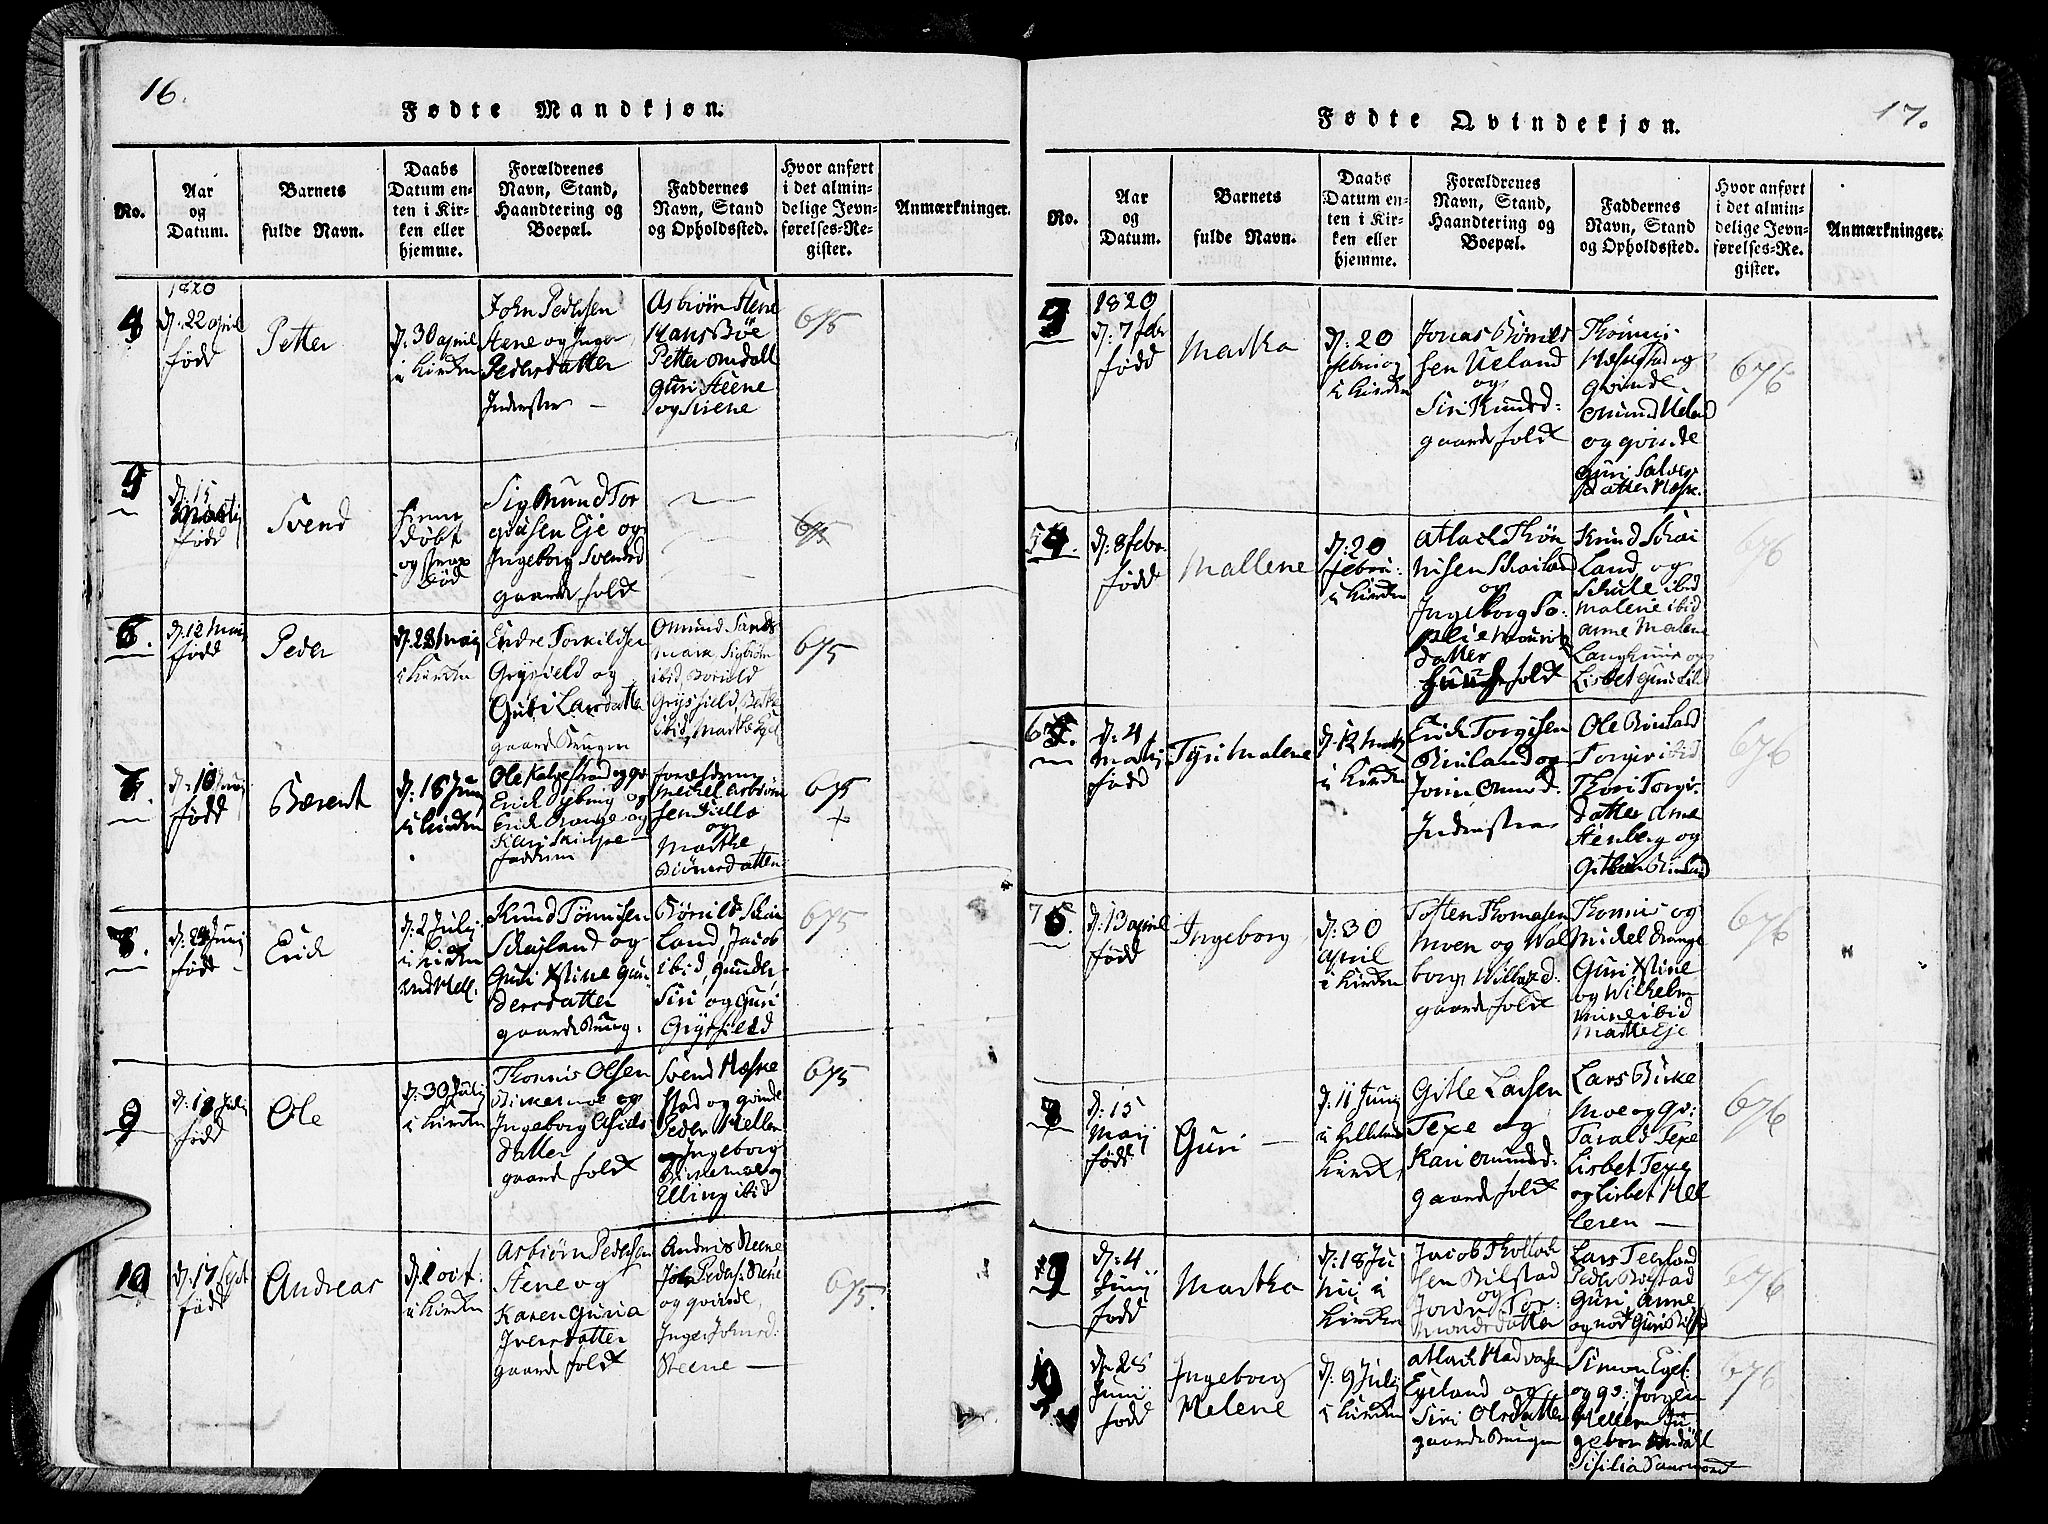 16.
Fødte Mandkjøn.
No.
Aar
og
Datum.
Barnets
fulde Navn.
Daabs
Datum en-
ten i Kir-
ken eller
hjemme.
Forældrenes
Navn, Stand,
Haandtering og
Boepæl.
Faddernes
Navn, Stand
og Opholdssted.
Hvor anført
i det almin-
delige Jevn-
førelses-Re-
gister.
Anmærkninger.
4
1820
d: 22 april
født
Petter
d: 30 april
i Kirken
John Pedersen
Stene og Inger
Pedersdatter
Inderster
Asbiørn Stene
Hans Bøe
Petter Omdall
Guri Steene
og Sirene
675
5
d: 15
Martij
født
Svend
hiemme
døbt
og strax
død
Sigmund Tor
gersen Eje og
Ingeborg Svensd
gaardefolk
675
6.
d: 12 Maij
født
Peder
d: 28 Maij
i Kirken
Endre Torkildsen
Grysfield og
Guri Larsdatter
gaard Brugere
Omund Sands
mark, Sigbiørn
ibid, Borild
Grysfield, Berthe
ibid, Marthe Eye
675
7.
d: 10 Junij
født
Bærent
d: 18 Junij
i Kirken
Ole Kalvestrand og qv
Erick Dybing og
Erick Drange og
Kari Skibpe
faddere
forældrene
Michel Asbiørn
sen Fidllo
og
Marthe
Biørnsdatter
675
+
8.
d: 24 Junij
født
Erick
d: 2 Julij
i Kirken
Knud Tønnisen
Schajland og
Guri Xstine Gun
dersdatter
gaardbrug.
Børild Schai
Land, Jacob
ibid, Gunder,
Siri og Guri
Grysfield
675
9
d: 10 Julij
født
Ole
d: 30 Julij
i Kirken
Thonnis Olsen
Birkemoe og
Ingeborg Asids
datter
gaardefolk
Svend Hæske
stad og qvinde
Peder Heller
og Ingeborg
Birkemoe og
Elling ibid
675
10
d: 17 Sept
født
Andreas
d: 1 oct:
i Kirken
Asbiørn Pedersen
Stene og
Karen Guria
Iversdatter
gaardefolk
Andreas Steene
John Peders: Stene
og qvinde,
Inger Johnsd:
Steene
675.
17.
Fødte Qvindekjøn.
No.
Aar
og
Datum.
Barnets
fulde Navn.
Daabs
Datum en-
ten i Kir-
ken eller
hjemme.
Forældrenes
Navn, Stand,
Haandtering og
Boepæl.
Faddernes
Navn, Stand
og Opholdssted.
Hvor anført
i det almin-
delige Jevn-
førelses-Re-
gister.
Anmærkninger.
1820
d: 7 febr
født
Martha
d: 20
febru
i Kirken
Jonas Tønnes
sen Ueland
og
Siri Knudsd:
gaardefolk
Thønnis
Hæskestad og
qvinde
Omund Ueland
og qvinde
Guri Salves
datter Hæske.
676
5
d: 8 febr.
født
Mallene
d: 20
febru:
i Kirken
Atlach Thøn
nisen Schailand
og
Ingeborg So
phie Mourids
datter
huusfolk
Knud Schai
Land og
Schule ibid
Malene ibid
Anne Malene
og
676
6
d: 4
Martij
født
Tyri Malene
d: 12 Martij
i Kirken
Erick Torgisen
Birkland og
Jorin Omund
Inderster
Ole Birkland
Torger ibid
Thori Torgis
datter Anne
Stenberg og
Birkland
676
7
d: 13 april
født
Ingeborg
d: 30
april
i Kirken
Tosten Thomasen
Moen og Wal
borg Willasd:
gaardefolk
Thonnis og
Michel Drange
Guri Xstine
og Wilhelm
mine ibid
Marthe Eje
676
8
d: 15
Maij
født
Guri
d: 11 Junij
i Helleland
Kirke
Gitle Larsen
Texe og
Kari Omunds:
gaardefolk
Lars Birke
Moe og qv:
Tarald Texe
Lisbet Texe
og Lisbet Hel
leren
676
9
d: 4
Junij
født
Martha
d: 18 Ju
nij i
Kirken
Jacob Thollach
sen Bilstad
og
Joren Tor
mundsdatter
Lars Teerland
Peder Bilstad
Guri Anne
676
10
d: 25
Junij
født
Ingeborg
Helene
d: 9 Julij
i Kirken
Atlach Hadvorsen
Egeland og
Siri Olsdatter
gaardbrugere
Simon Egel:
og qv: Jørgen
Helleren In
geborg Omdall
Sisilia
676